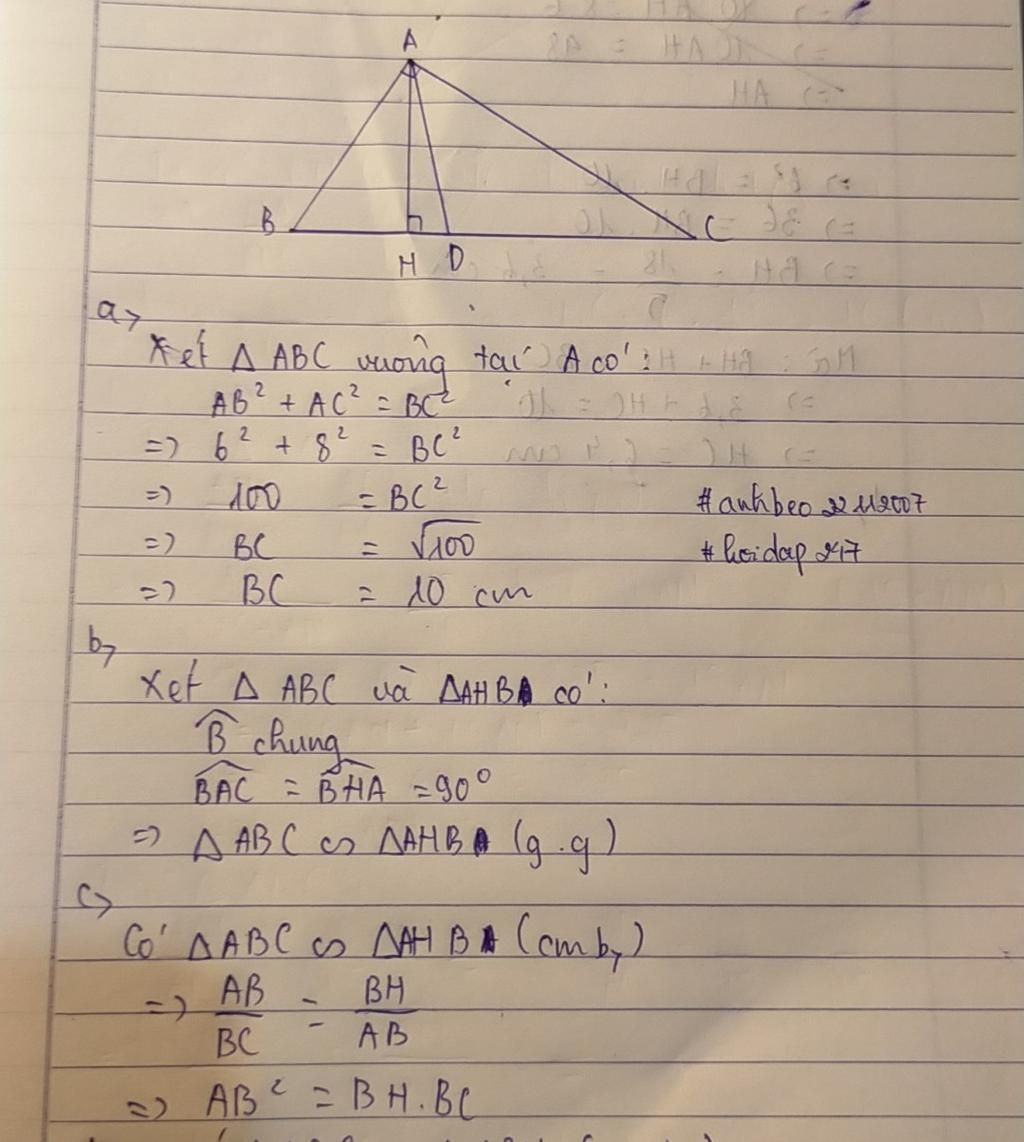 A
B
H D
C
a,
Xét Δ ABC vuông tại A có:
AB² + AC² = BC²
=> 6² + 8² = BC²
=> 100 = BC²
=> BC = √100
=> BC = 10 cm
#anhbeo22112007
#hoidap247
b,
Xét Δ ABC và ΔAHB có:
B̂ chung
BAC = BHA = 90°
=> Δ ABC ∽ ΔAHB (g.g)
c,
Có ΔABC ∽ ΔAHB (cm b,)
=> AB/BC = BH/AB
=> AB² = BH.BC